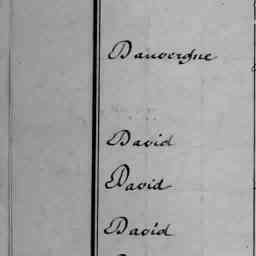 Dauvergne
David
David
David